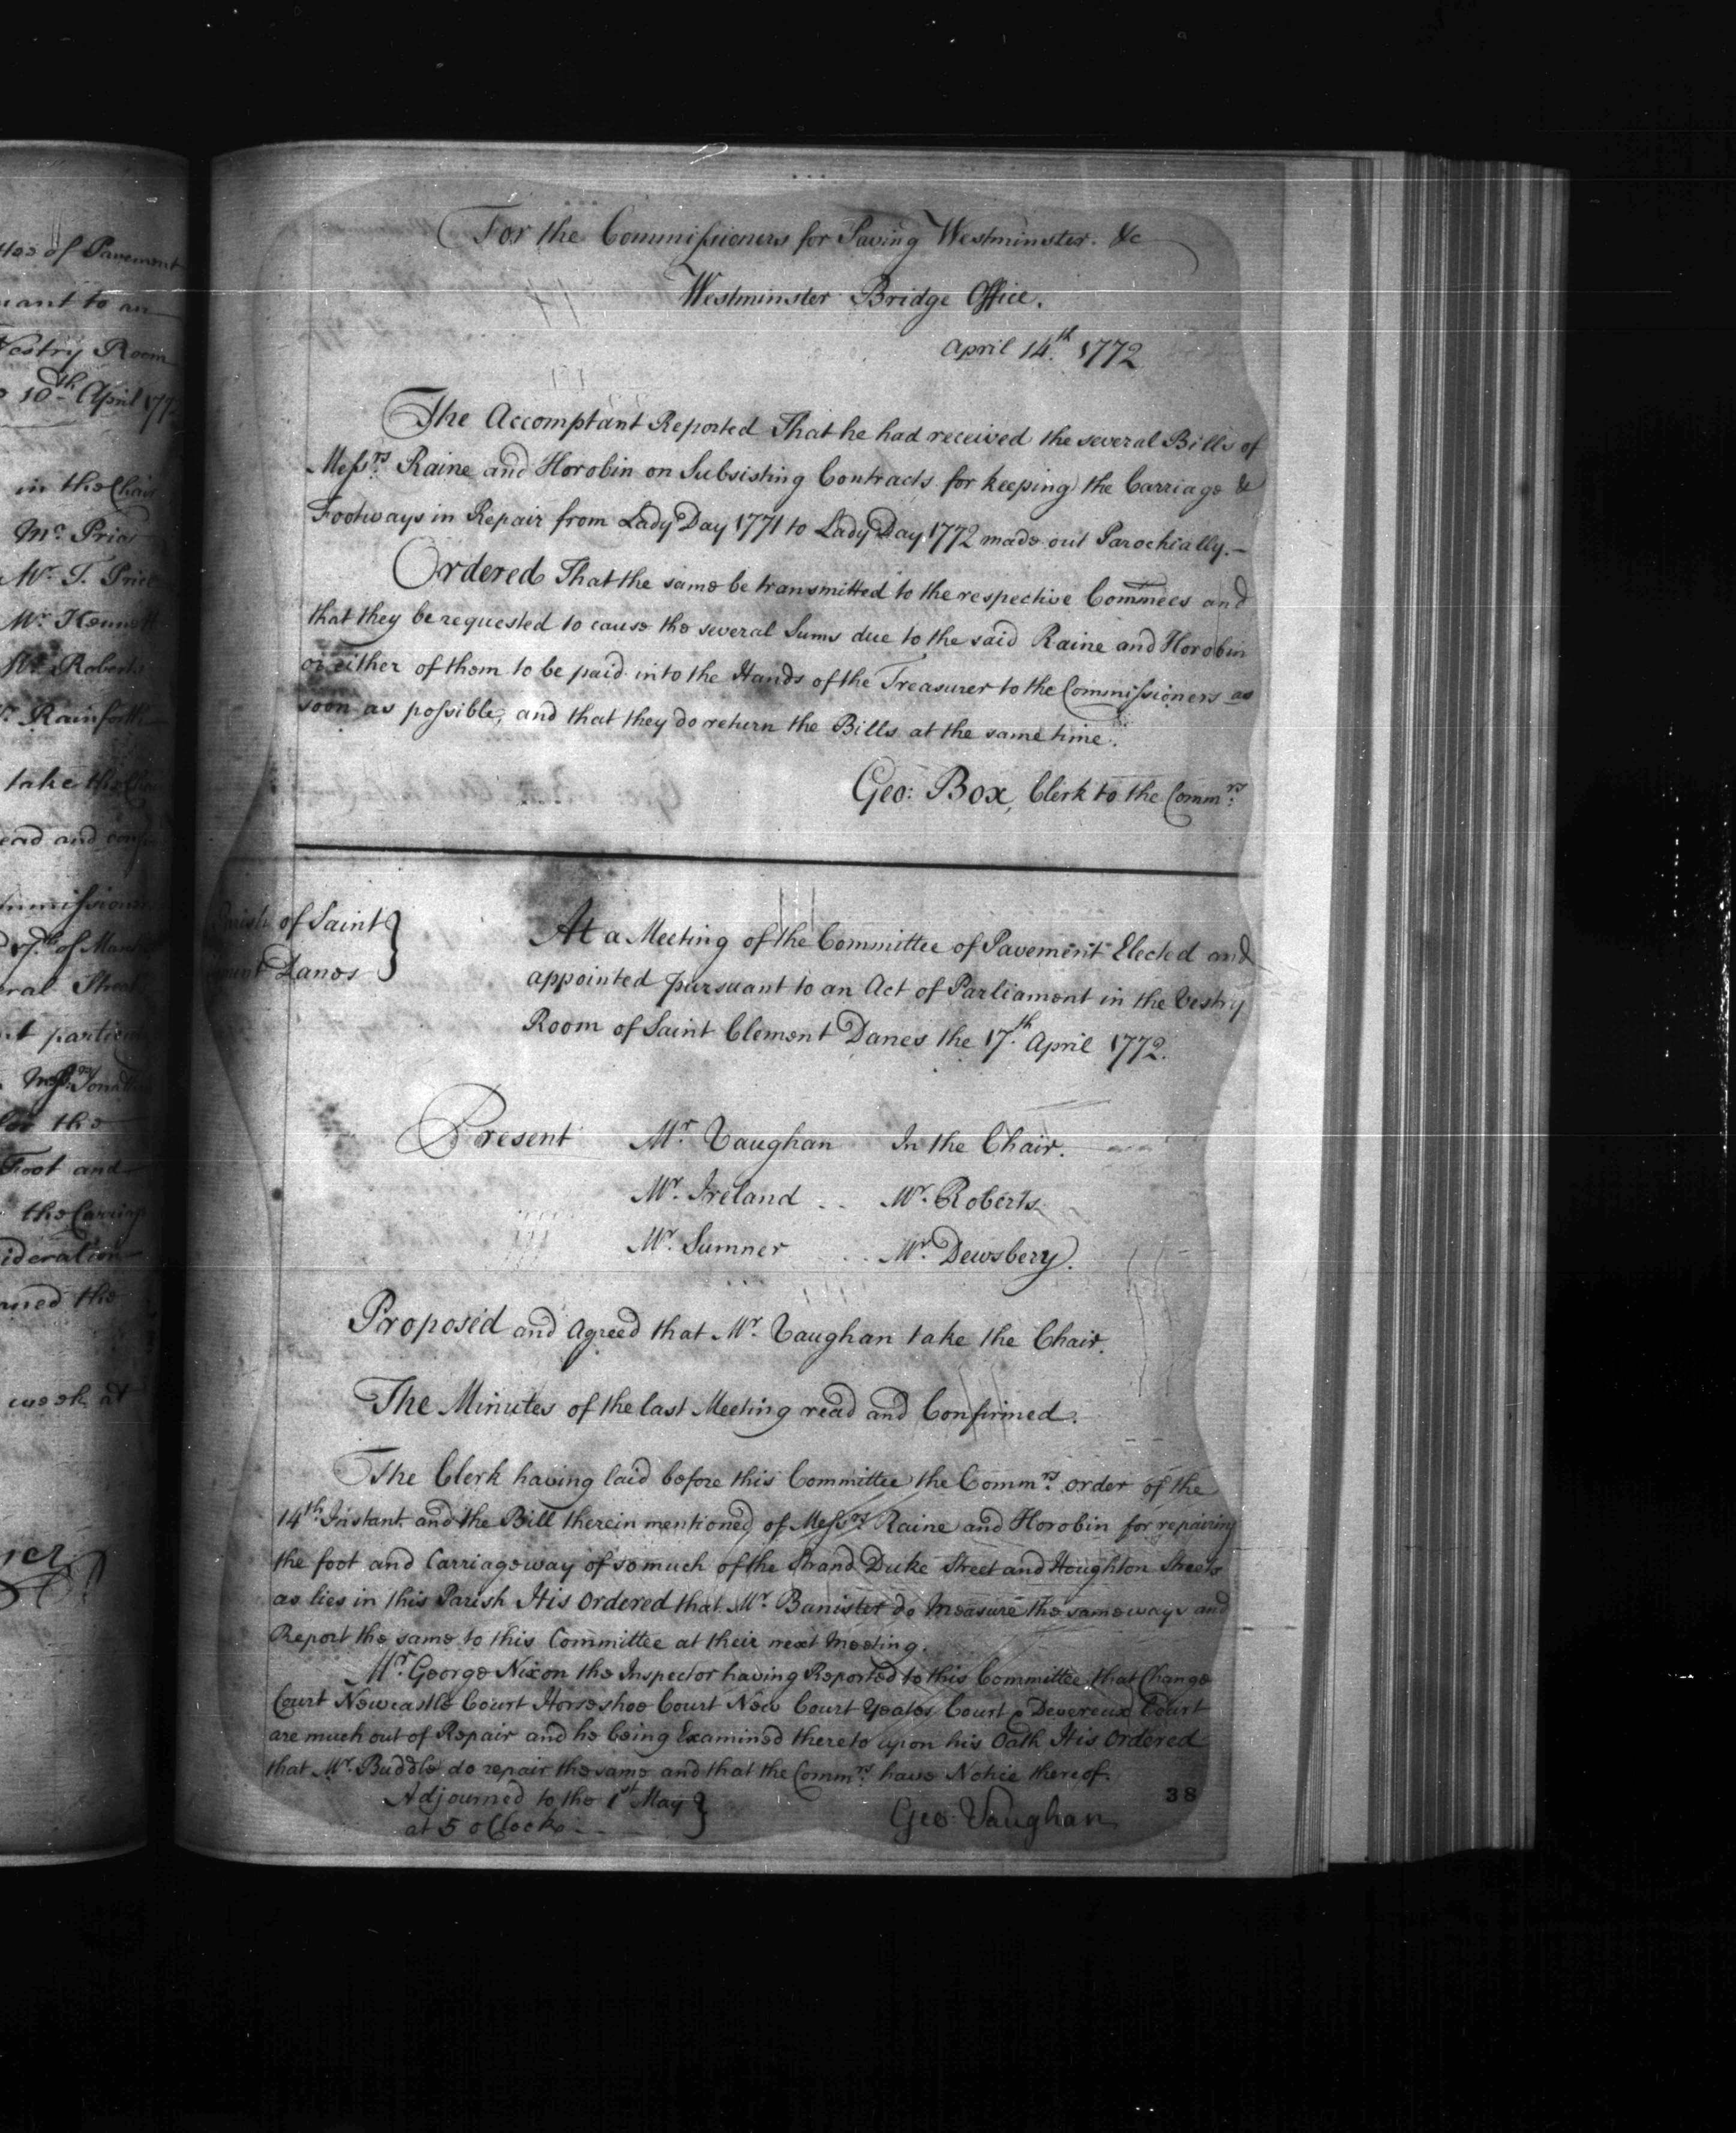 For the Commissioners for Paving Westminster. &c
Westminster Bridge Office.
April 14th. 1772
The Accomptant Reported That he had received the several Bills of
Messrs. Raine and Horobin on Subsisting Contracts for keeping the Carriage &
Footways in Repair from Lady Day 1771 to Lady Day 1772 made out Parochially.—
Ordered That the same be transmitted to the respective Commees and
that they be requested to cause the several Sums due to the said Raine and Horobin
or either of them to be paid into the Hands of the Treasurer to the Commissioners as
soon as possible, and that they do return the Bills at the same time.
Geo: Box, Clerk to the Commrs.
Parish of Saint
Danes
At a Meeting of the Committee of Pavement Elected and
appointed pursuant to an Act of Parliament in the Vestry
Room of Saint Clement Danes the 17th. April 1772.
Present Mr. Vaughan In the Chair.
Mr. Ireland .. Mr. Roberts
Mr. Sumner .. Mr. Dewsbery.
Proposed and Agreed that Mr. Vaughan take the Chair.
The Minutes of the last Meeting read and Confirmed.
The Clerk having laid before this Committee the Commrs. order of the
14th. Instant and the Bill therein mentioned of Messrs. Raine and Horobin for repairing
the foot and Carriageway of so much of the Strand Duke Street and Houghton Streets
as lies in this Parish It is Ordered that Mr. Banister do Measure the same ways and
Report the same to this Committee at their next Meeting.
Mr. George Nixon the Inspector having Reported to this Committee that Change
Court Newcastle Court Horseshoe Court New Court Yeates Court & Devereux Court
are much out of Repair and he being Examined thereto upon his Oath It is Ordered
that Mr. Buddle do repair the same and that the Commrs. have Notice thereof.
Adjourned to the 1st May
at 5 oClock
Geo: Vaughan
38
of Pavement
to an
Vestry Room
10th April 177
in the Chair
Mr. Prior
Mr. T. Price
Mr.
Mr. Roberts
Rainforth
take the
and
17th. of
Foot and
the
the
week at